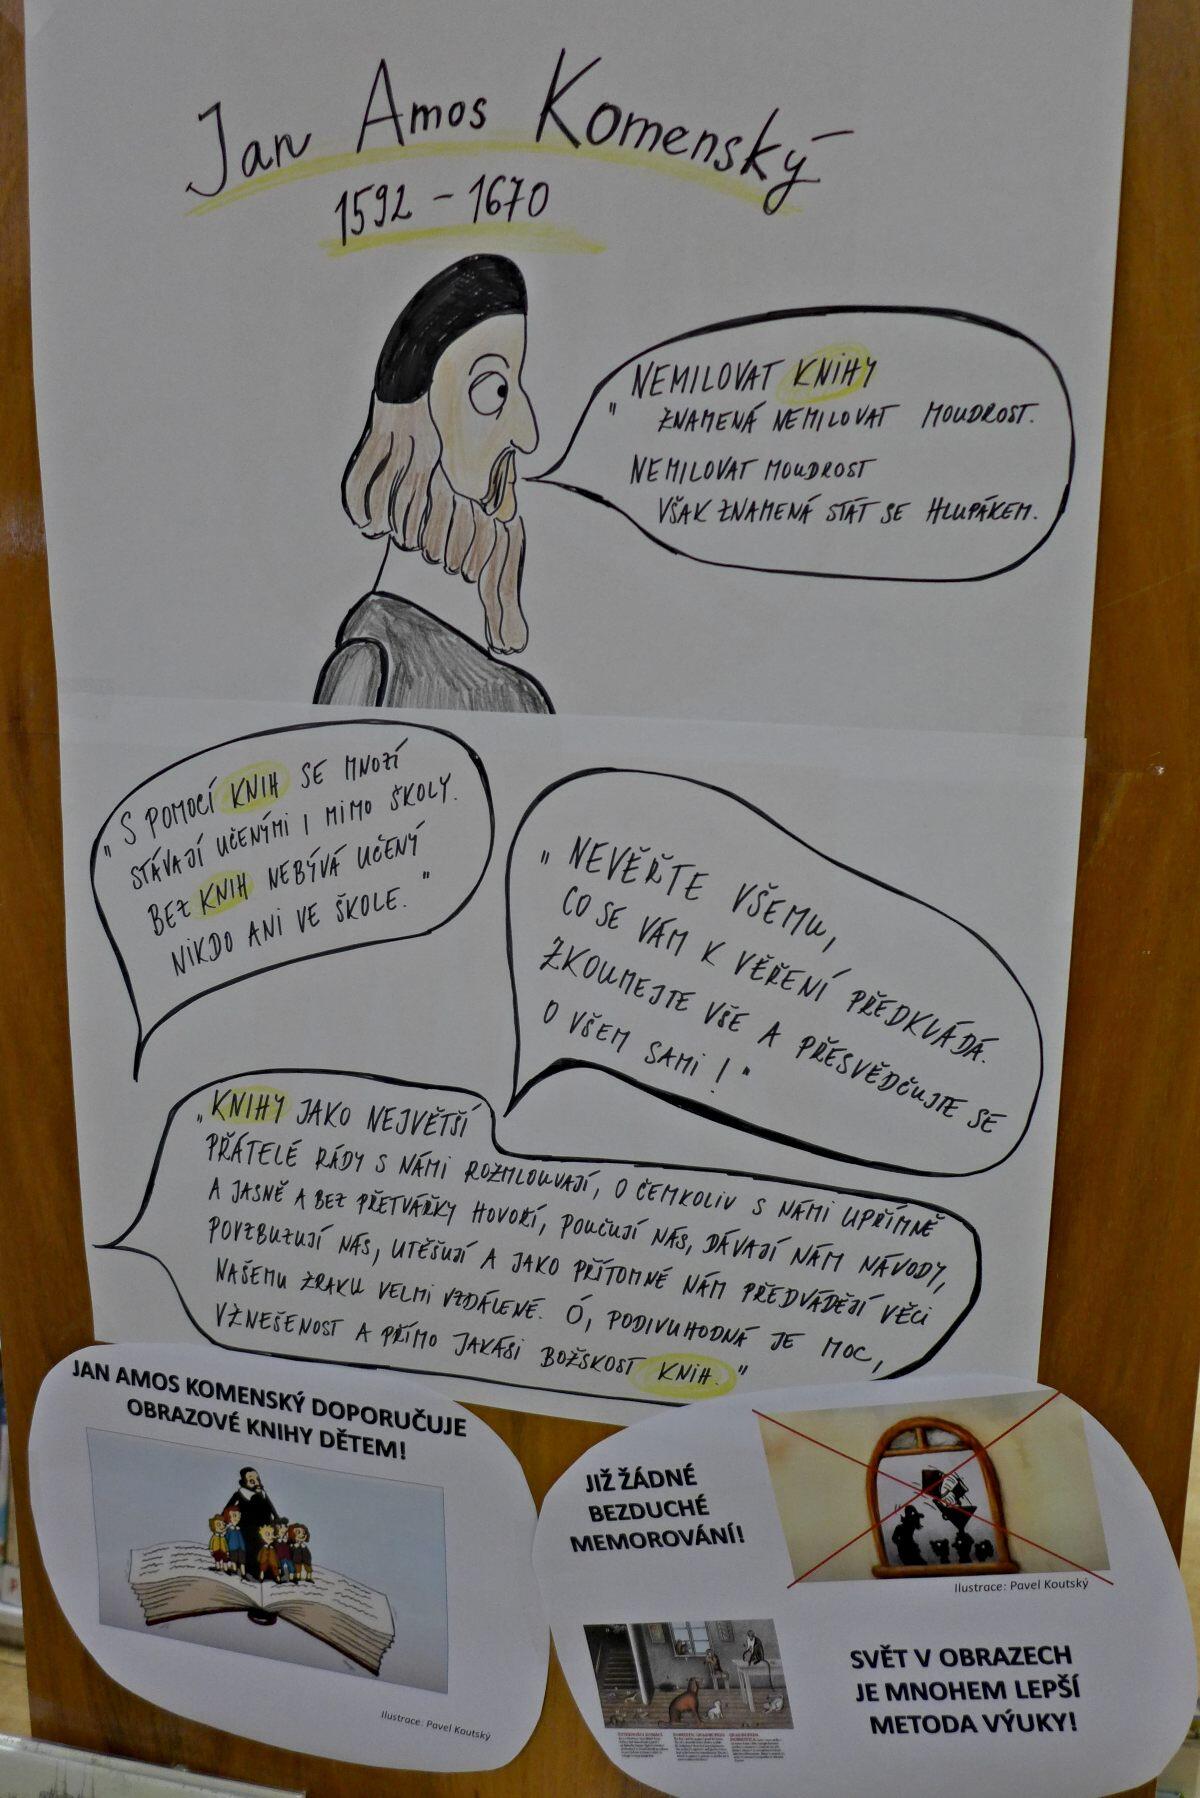 Jan Amos Komenský
1592 - 1670
NEMILOVAT KNIHY
" ZNAMENÁ NEMILOVAT MOUDROST.
NEMILOVAT MOUDROST
VŠAK ZNAMENÁ STÁT SE HLUPÁKEM.
"S POMOCÍ KNIH SE MNOZÍ
STÁVAJÍ UČENÝMI I MIMO ŠKOLY.
BEZ KNIH NEBÝVÁ UČENÝ
NIKDO ANI VE ŠKOLE."
"NEVĚŘTE VŠEMU,
CO SE VÁM K VĚŘENÍ PŘEDKVÁDÁ.
ZKOUMEJTE VŠE A PŘESVĚDČUJTE SE
O VŠEM SAMI!"
"KNIHY JAKO NEJVĚTŠÍ
PŘÁTELÉ RÁDY S NÁMI ROZMLOUVAJÍ, O ČEMKOLIV S NÁMI UPŘÍMNĚ
A JASNĚ A BEZ PŘETVÁŘKY HOVOŘÍ, POUČUJÍ NÁS, DÁVAJÍ NÁM NÁVODY,
POVZBUZUJÍ NÁS, UTĚŠUJÍ A JAKO PŘÍTOMNÉ NÁM PŘEDVÁDĚJÍ VĚCI
NAŠEMU ZRAKU VELMI VZDÁLENÉ. Ó, PODIVUHODNÁ JE MOC,
VZNEŠENOST A PŘÍMO JAKÁSI BOŽSKOST KNIH."
JAN AMOS KOMENSKÝ DOPORUČUJE
OBRAZOVÉ KNIHY DĚTEM!
Ilustrace: Pavel Koutský
JIŽ ŽÁDNÉ
BEZDUCHÉ
MEMOROVÁNÍ!
Ilustrace: Pavel Koutský
SVĚT V OBRAZECH
JE MNOHEM LEPŠÍ
METODA VÝUKY!